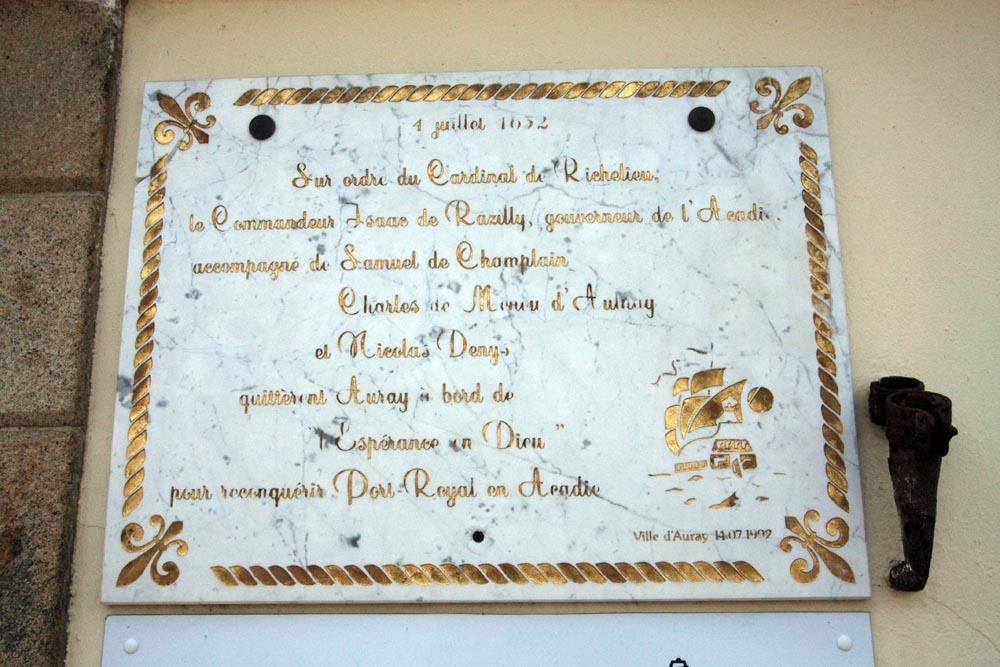 4 juillet 1632
Sur ordre du Cardinal de Richelieu,
le Commandeur Isaac de Razilly, gouverneur de l'Acadie,
accompagné de Samuel de Champlain
Charles de Menou d'Aulnay
et Nicolas Denys
quittèrent Auray à bord de
l'Espérance en Dieu"
pour reconquérir Port-Royal en Acadie
Ville d'Auray 14.07.1992